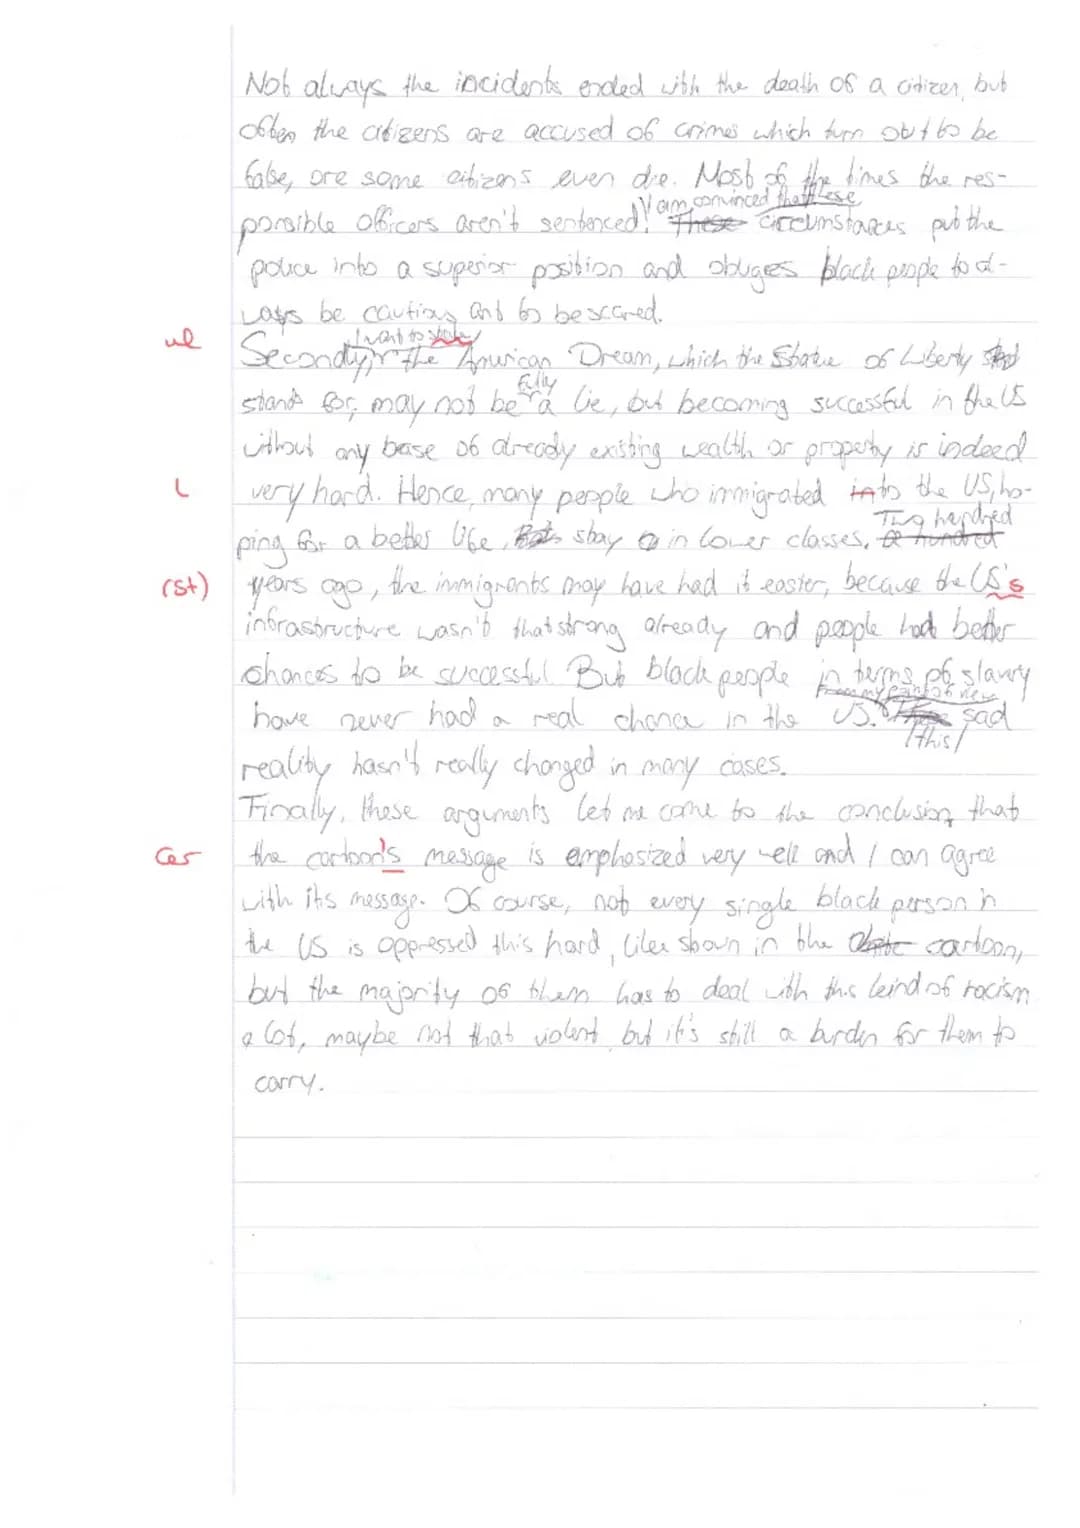 Not always the incidents ended with the death of a citizen, but
often the citizens are accused of crimes which turn out to be
false, ore some citizens even die. Most of the times the res-
ponsible officers aren't sentenced! I am convinced that these
These circumstances put the
police into a superior position and obliges black people to al-
ways be cautious and to be scared.
ul
I want to
Secondly, the American Dream, which the Statue of Liberty
stands for, may not be fully a lie, but becoming successful in the US
without any base of already existing wealth or property is indeed
L very hard. Hence, many people who immigrated into the US, ho-
ping for a better life, stay in lower classes. Two hundred
a hundred
(st) years ago, the immigrants may have had it easier, because the US's
infrastructure wasn't that strong already and people had better
chances to be successful. But black people in terms of slavery
from my point of view
have never had a real chance in the US. sad
/this/
reality hasn't really changed in many cases.
Finally, these arguments let me come to the conclusion, that
the cartoon's message is emphasized very well and I can agree
with its message. Of course, not every single black person in
the US is oppressed this hard, like shown in the cartoon,
but the majority of them has to deal with this kind of racism
a lot, maybe not that violent, but it's still a burden for them to
carry.